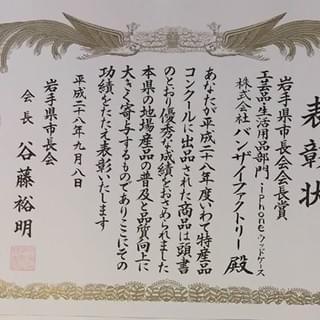 表彰状
岩手県市長会会長賞
工芸品・生活用品部門・iphoneウッドケース
株式会社バンザイファクトリー 殿
あなたが平成二十八年度いわて特産品
コンクールに出品された商品は頭書
のとおり優秀な成績をおさめられました
本県の地場産品の普及と品質向上に
大きく寄与するものでありここにその
功績をたたえ表彰いたします
平成二十八年九月八日
岩手県市長会
会長 谷藤裕明